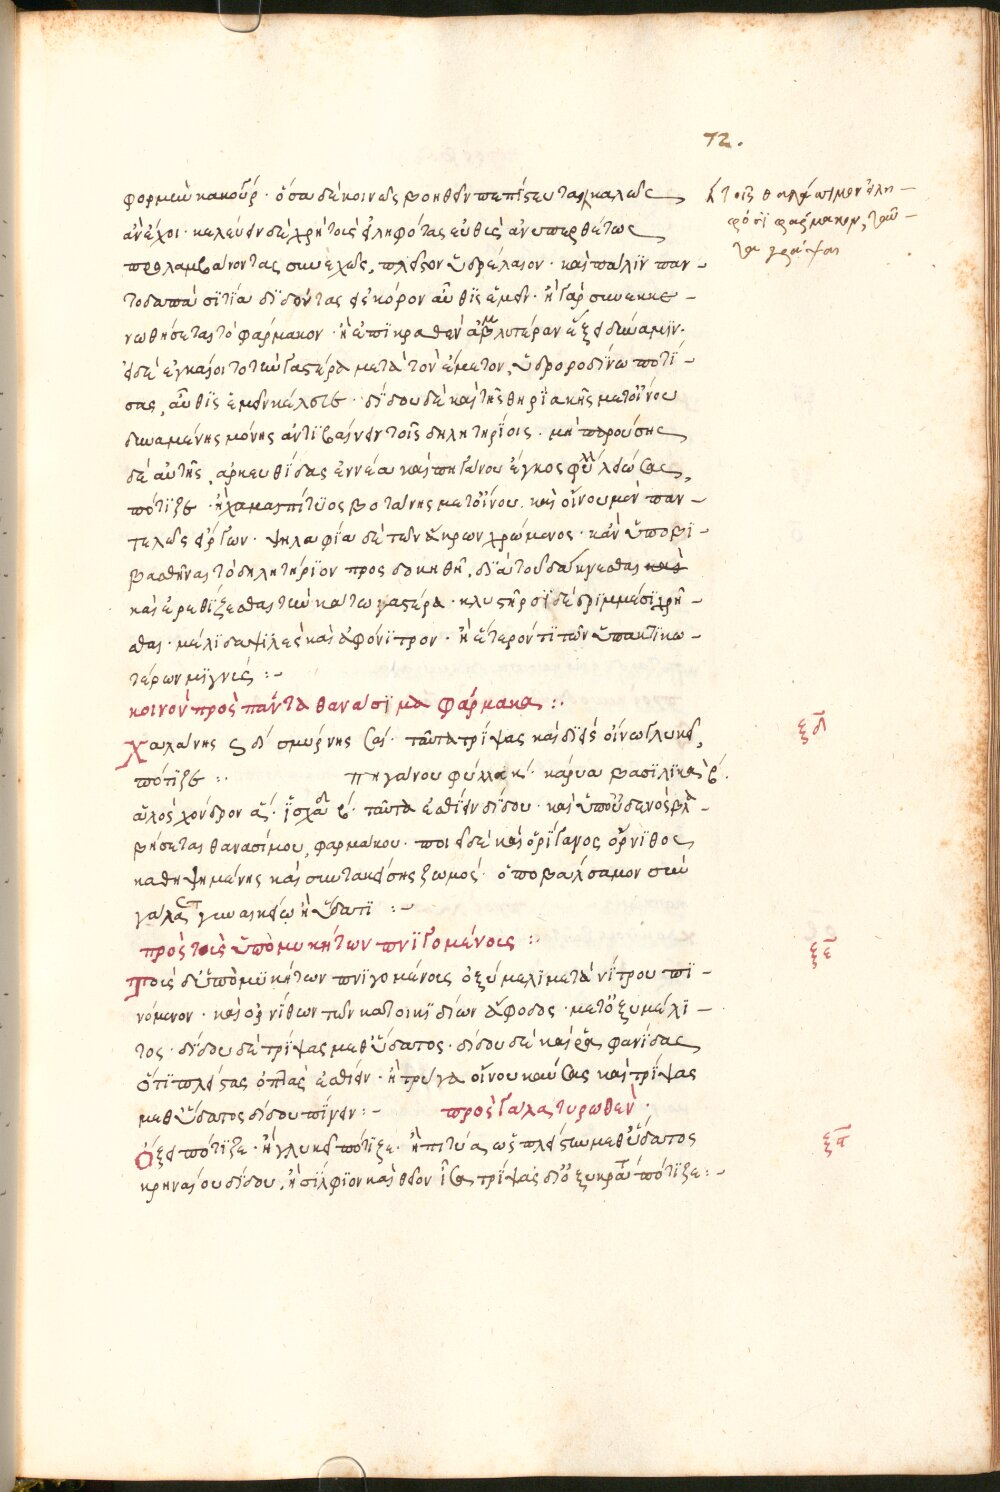 72.
φορμεῖν κακοῦρ· ὅσα δὲ κοινῶς βοηθεῖν πεπίστευται καλῶς
ἀνέχοι· κελεύειν δὲ χρὴ τοῖς εἰληφότας εὐθὺς ἀνυπερθέτως
προλαμβάνοντας συνεχῶς, πλεῖον ὑδρέλαιον· καὶ πάλϊν παν-
τοδαπὰ σιτία διδόντας εἰς κόρον αὖθις ἐμεῖν· ἢ γὰρ συνεκκε-
νωθήσεται τὸ φάρμακον· ἢ ἐπικραθὲν ἀμβλυτέραν ἕξει δύναμιν·
εἰ δὲ ἐγκέοιτο τὴν γαστέρα μετὰ τὸν ἔμετον, ὑδροροσίνω ποτί-
σας, αὖθις ἐμεῖν κέλευε· δίδου δὲ καὶ τῆς θηριακῆς μετ οἴνου
δυναμένης μόνης ἀντιβαίνειν τοῖς δηλητηρίοις· μὴ παρούσης
δὲ αὐτῆς, ἀρκευθίδας ἐννέα καὶ πηγάνου ὄγκος φύλ
πότιζε· ἢ χαμαιπίτυος βοτάνης μετ οἴνου. καὶ οἴνου μὲν παν-
τελῶς εἴργων· ψηλαφία δὲ τῶν ἄκρων χρώμενος· κἂν ὑποβι-
βασθῆναι τὸ δηλητήριον προς δοκηθῆ, διὰ τοῦ δάκνεσθαι καὶ
καὶ ἐρεθίζεσθαι τὴν κάτω γαστέρα· κλυστῆρσι δὲ δριμμέσι χρῆ-
σθαι· μέλι δαψιλὲς καὶ ἀφόνιτρον· ἢ ἕτερόν τι τῶν ὑπακτικω-
τέρων μιγνύς :-
κοινὸν πρὸς πάντα θανάσιμα φάρμακα :·
Χαλβάνης ς δί σμύρνης ταῦτα τρίψας καὶ διεὶς οἴνω γλυκεῖ,
πότιζε :· πηγάνου φύλλα κ· κάρυα βασιλικὰ β.
ἁλὸς χόνδρον α· ἰσχάδ β· ταῦτα ἐσθίειν δίδου· καὶ ὑπ οὐδενὸς βλα-
βήσεται θανασίμου, φαρμάκου· ποιεῖ δὲ καὶ ὀρίγανος ὄρνιθος
καθηψημένης καὶ συντακείσης ζωμός· ὀποβάλσαμον σὺν
γάλακτι γυναικείω ἢ ὕδατι :-
πρὸς τοὺς ὑπὸ μυκήτων πνιγομένοις :·
Τοῖς δ ὑπὸ μυκήτων πνιγομένοις ὀξύμελι μετὰ νίτρου πι-
νόμενον· καὶ ὀρνίθων τῶν κατοικιδίων ἄφοδος· μετ ὀξυμέλι-
τος· δίδου δὲ τρίψας μεθ ὕδατος· δίδου δὲ καὶ ῥαφανίδας
ὅτι πλείστας ὀπτὰς ἐσθίειν· ἢ τρύγα οἴνου καύσας καὶ τρίψας
μεθ ὕδατος δίδου πίνειν :- πρὸς γάλα τυρωθέν·
Ὄξει πότιζε· ἢ γλυκεῖ πότιζε· ἢ πιτύας ὡς πλείστω μεθ ὕδατος
κρηναίου δίδου, ἢ σίλφιον καὶ θεῖον ἴσα τρίψας δι ὀξυκράτου πότιζε :-
φόσι φάρμακον,
ξδ
ξε
ξϛ